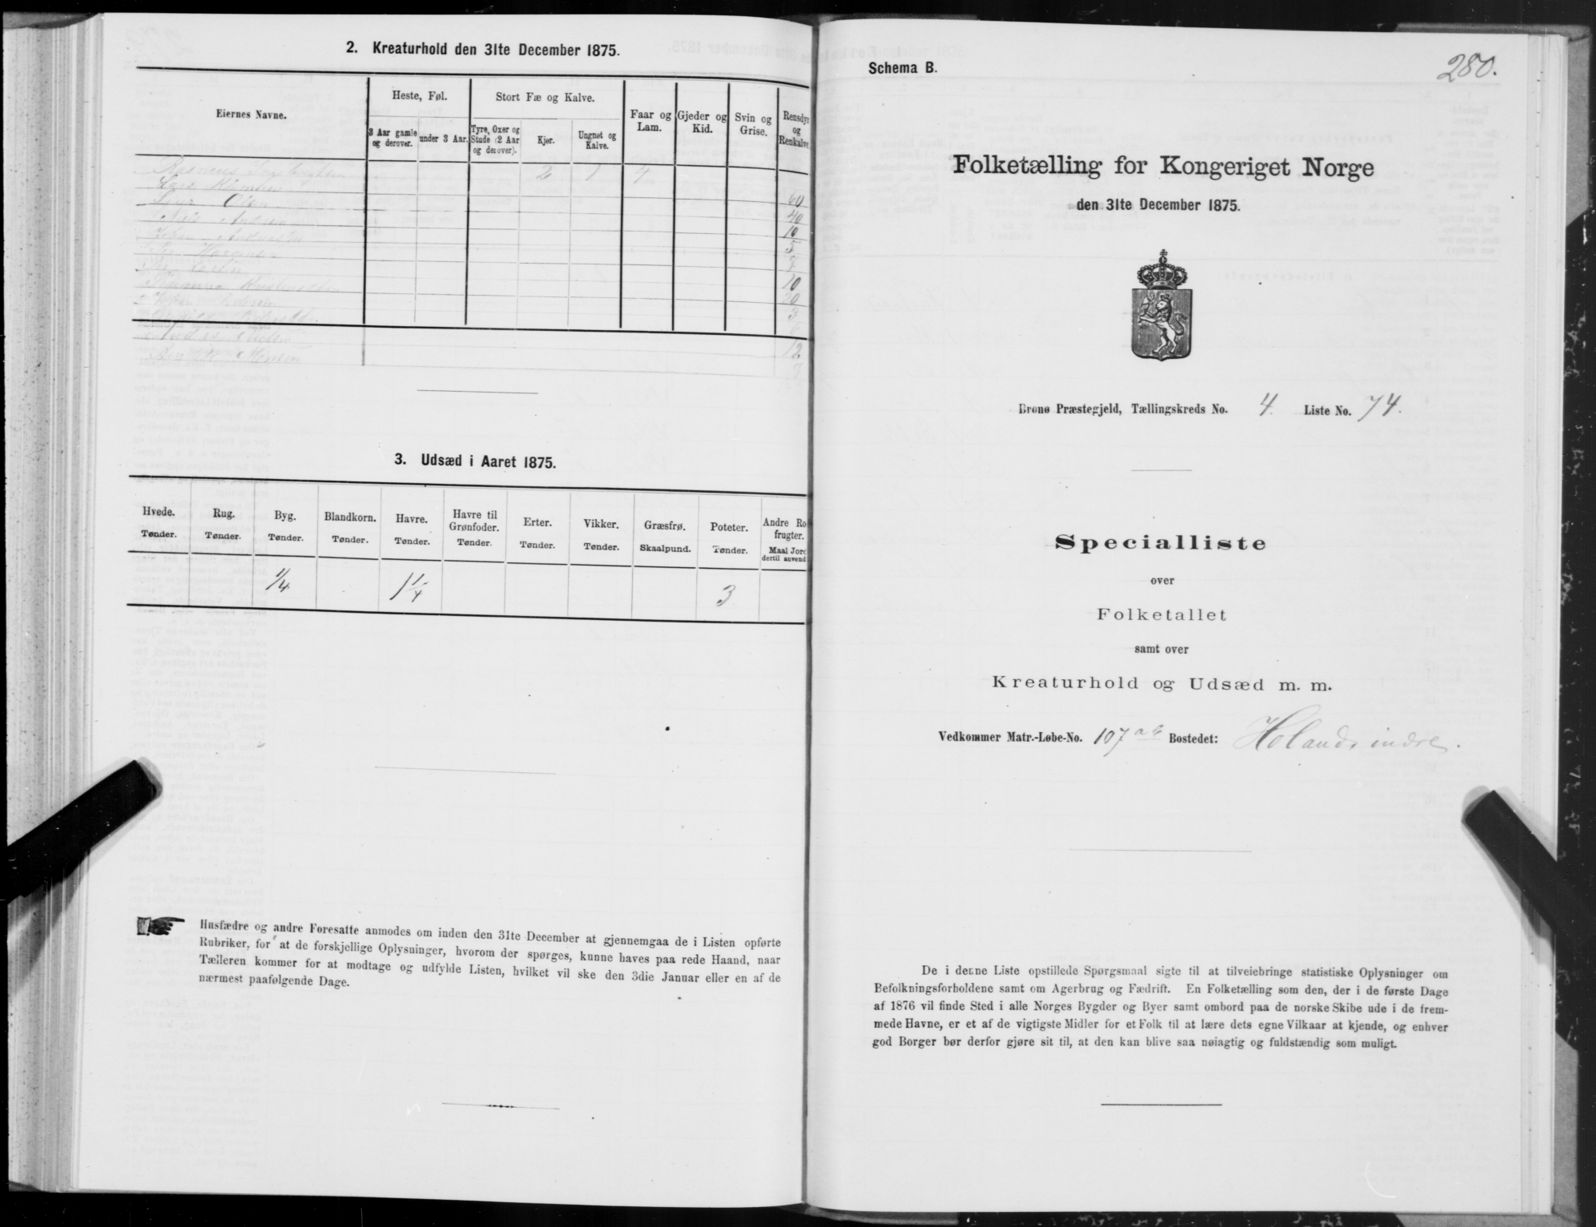 2. Kreaturhold den 31te December 1875.
Eiernes Navne.
Heste, Føl.
Stort Fæ og Kalve.
Faar og Lam.
Gjeder og Kid.
Svin og Grise.
Rensdyr og Renkalve
3 Aar gamle og derover.
under 3 Aar.
Tyre, Oxer og Stude (2 Aar og derover).
Kjør.
Ungnøt og Kalve.
2 1 7
60
40
10
10
20
12
3. Udsæd i Aaret 1875.
Hvede. Rug. Byg. Blandkorn. Havre. Havre til Grønfoder. Erter. Vikker. Græsfrø. Poteter. Andre Ro frugter.
Tønder. Tønder. Tønder. Tønder. Tønder. Tønder. Tønder. Tønder. Skaalpund. Tønder. Maal Jord dertil anvend
1/4 1 1/4 3
Husfædre og andre Foresatte anmodes om inden den 31te December at gjennemgaa de i Listen opførte
Rubriker, for at de forskjellige Oplysninger, hvorom der spørges, kunne haves paa rede Haand, naar
Tælleren kommer for at modtage og udfylde Listen, hvilket vil ske den 3die Januar eller en af de
nærmest paafølgende Dage.
Schema B.
280.
Folketælling for Kongeriget Norge
den 31te December 1875.
Brønø Præstegjeld, Tællingskreds No. 4. Liste No. 74.
Specialliste
over
Folketallet
samt over
Kreaturhold og Udsæd m. m.
Vedkommer Matr.-Løbe-No. 107 ab Bostedet: Holand, indre.
De i denne Liste opstillede Spørgsmaal sigte til at tilveiebringe statistiske Oplysninger om
Befolkningsforholdene samt om Agerbrug og Fædrift. En Folketælling som den, der i de første Dage
af 1876 vil finde Sted i alle Norges Bygder og Byer samt ombord paa de norske Skibe ude i de frem-
mede Havne, er et af de vigtigste Midler for et Folk til at lære dets egne Vilkaar at kjende, og enhver
god Borger bør derfor gjøre sit til, at den kan blive saa nøiagtig og fuldstændig som muligt.